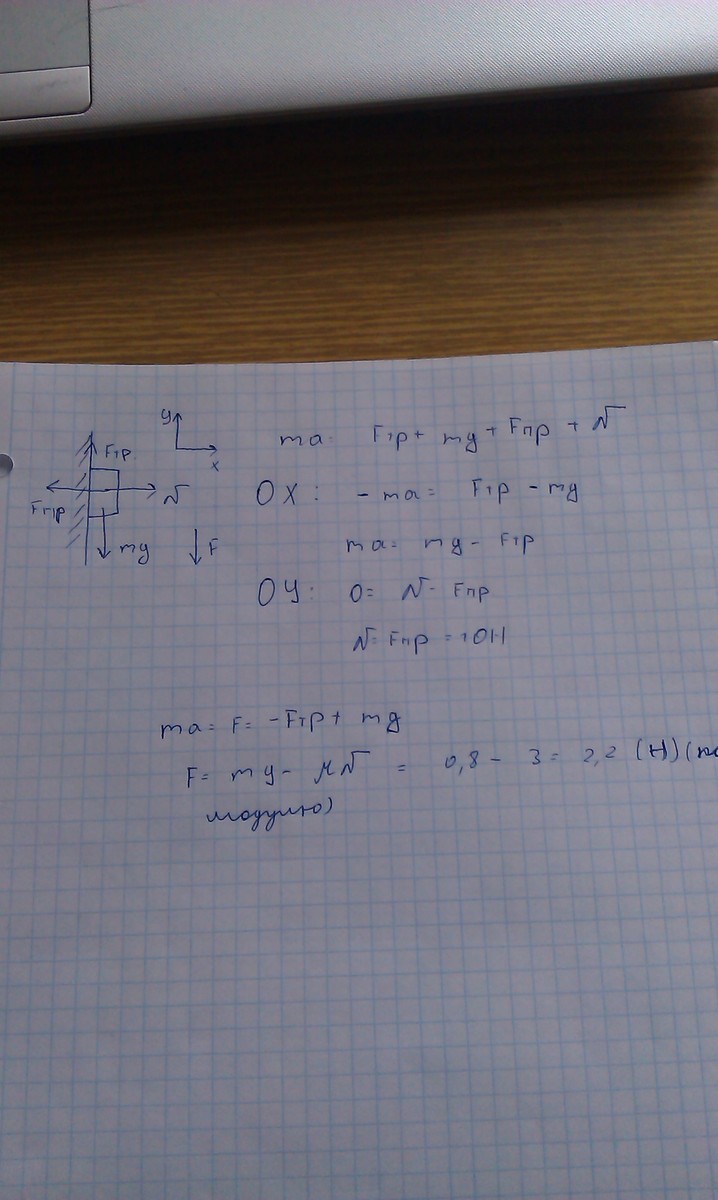 y
x
Fтр
Fпр
N
mg
F
ma = Fтр + mg + Fпр + N
OX: - ma = Fтр - mg
ma = mg - Fтр
OY: 0 = N - Fпр
N = Fпр = 10Н
ma = F = -Fтр + mg
F = mg - μN = 0,8 - 3 = 2,2 (Н) (по
модулю)